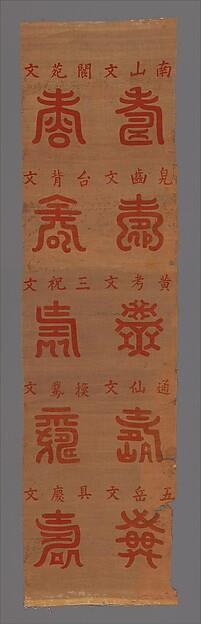 南山文 閬苑文
壽 壽
兒齒文 台背文
壽 壽
黃耇文 三祝文
壽 壽
通仙文 換鵞文
壽 壽
五岳文 具慶文
壽 壽